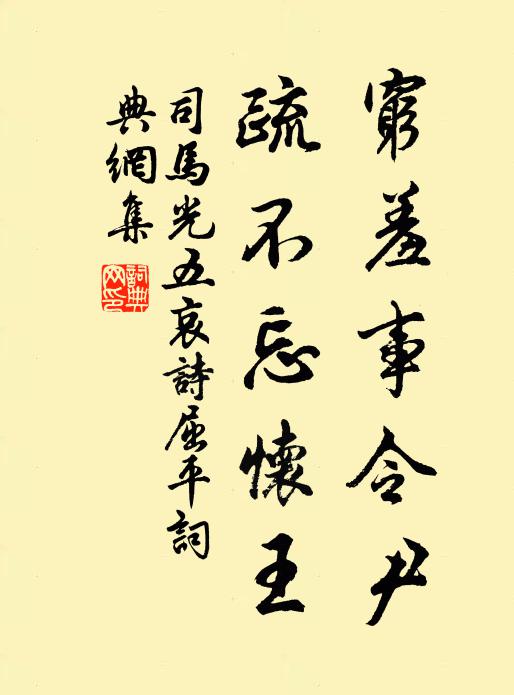 窮羞事令尹
疏不忘懷王
司馬光五哀詩屈平詞
典網集
詞典網印